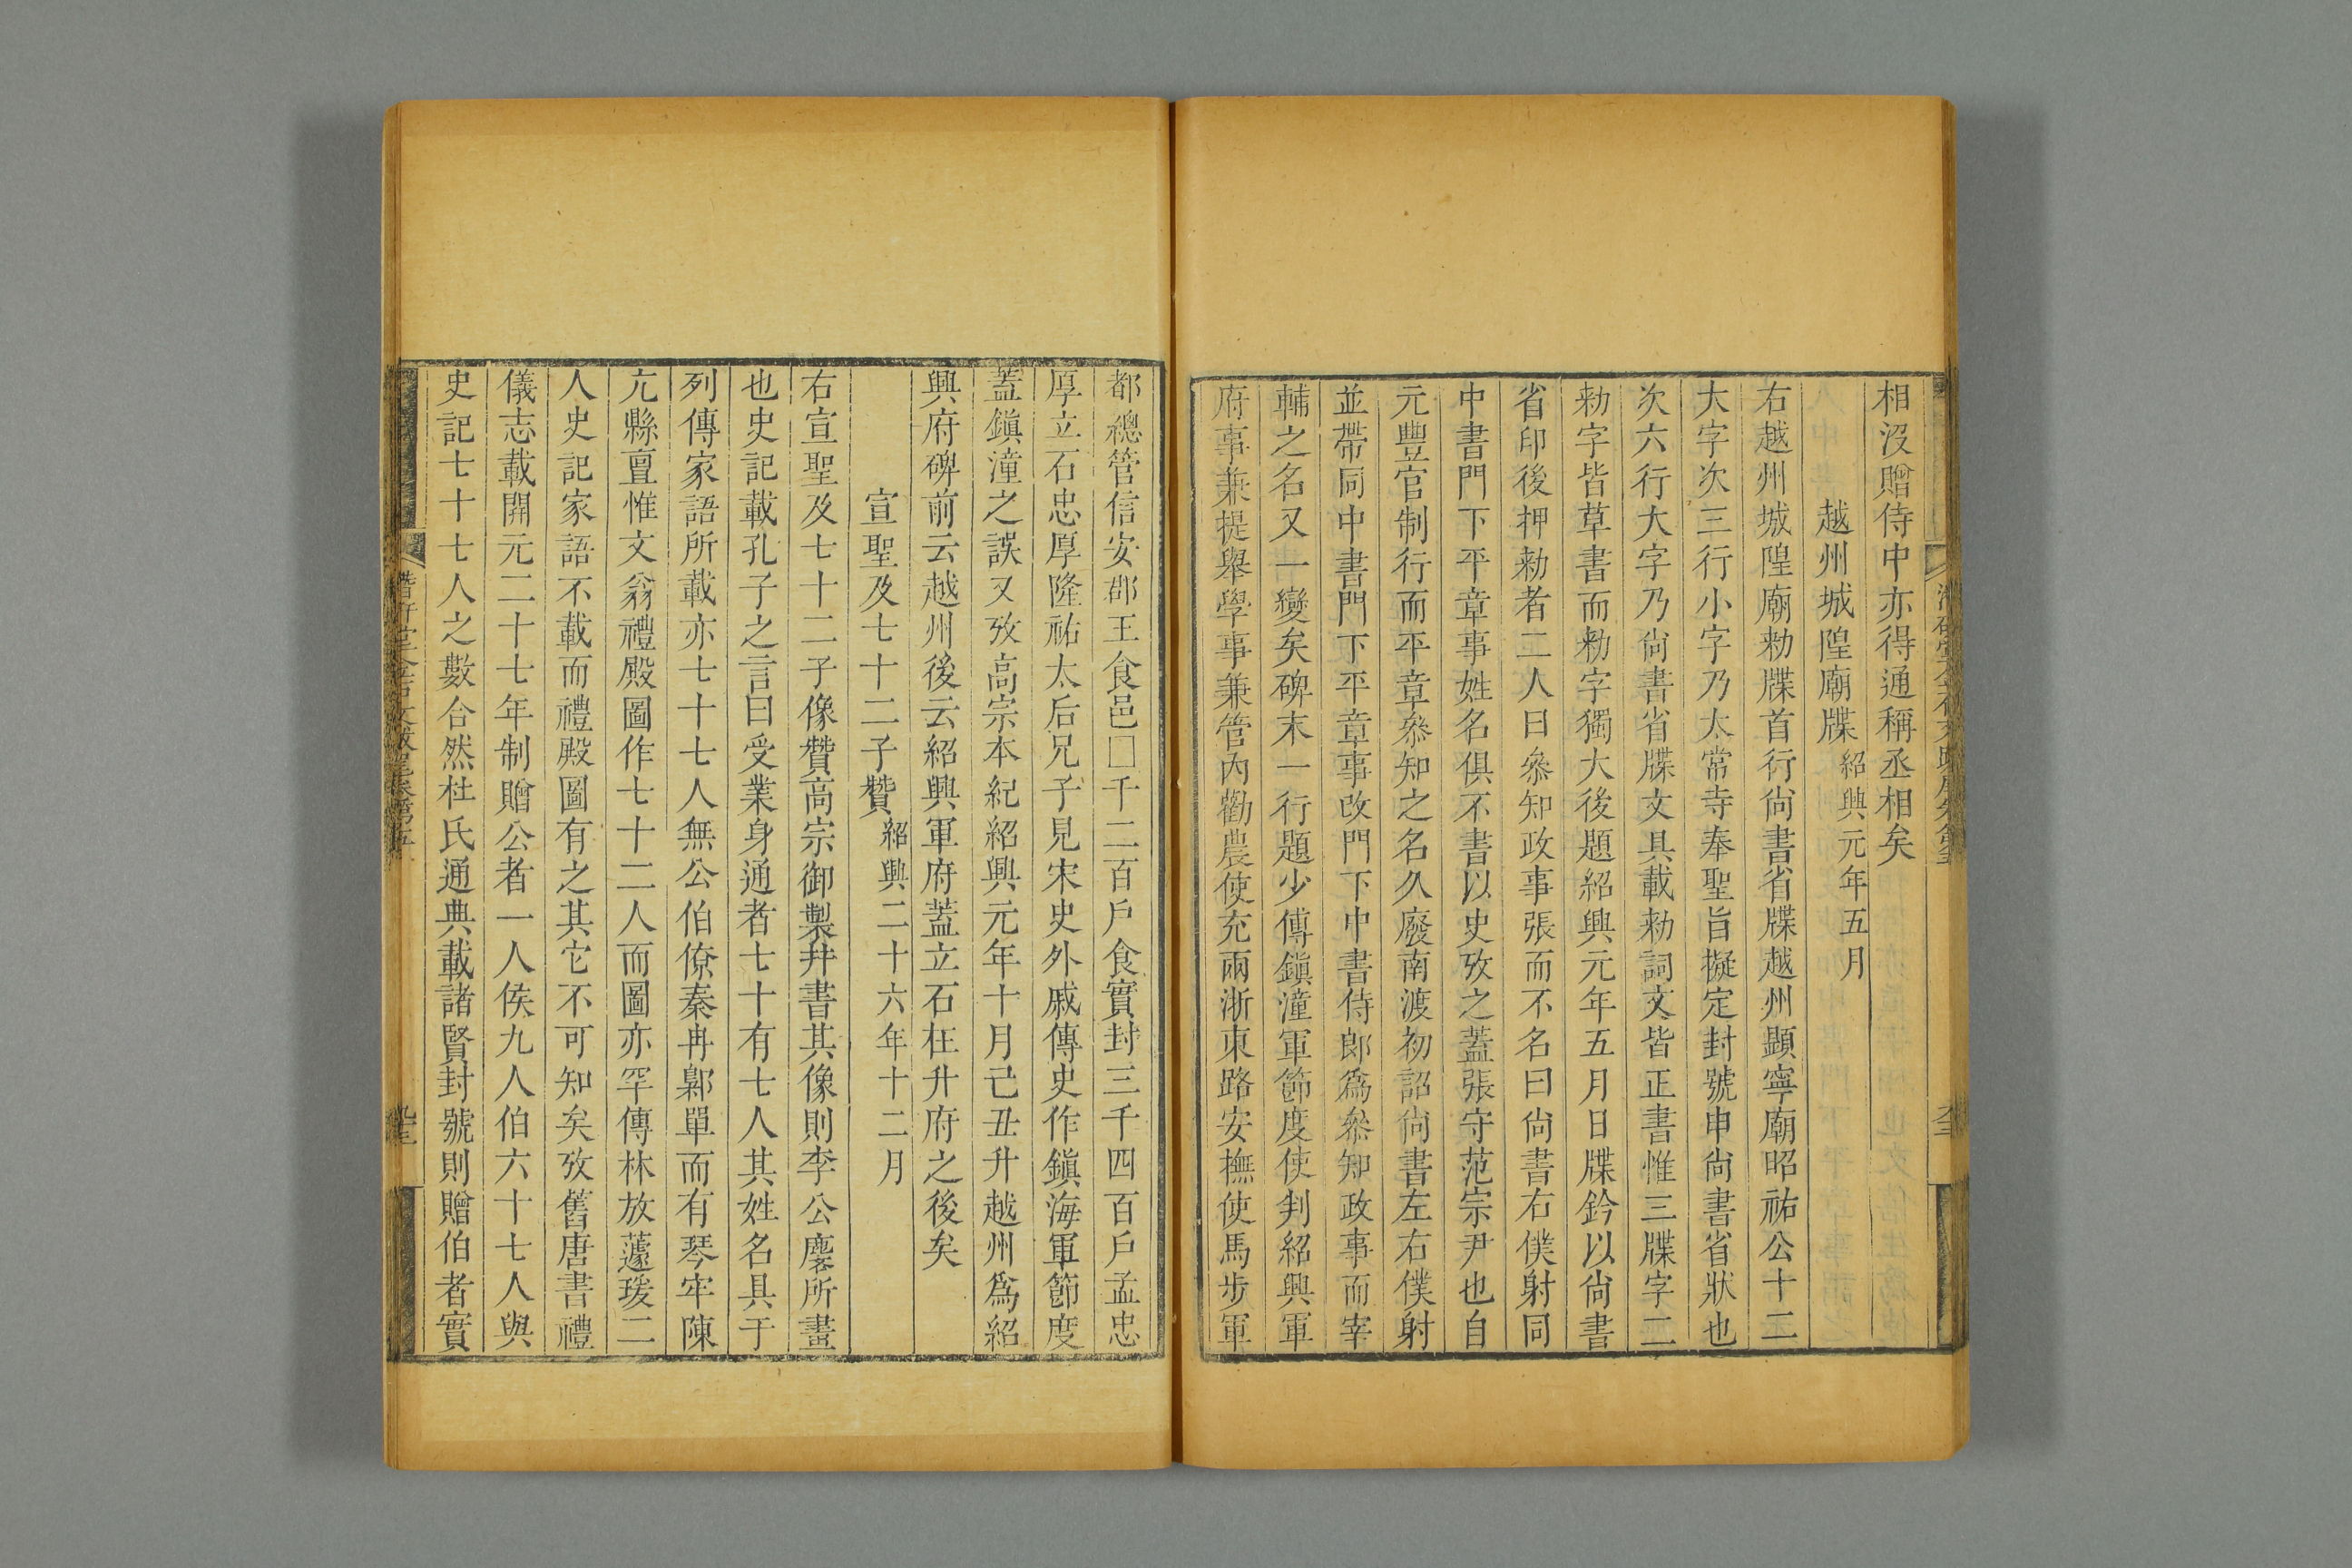 相沒贈侍中亦得通稱丞相矣
越州城隍廟牒紹興元年五月
右越州城隍廟勑牒首行尙書省牒越州顯寧廟昭祐公十二
大字次三行小字乃太常寺奉聖旨擬定封號申尙書省狀也
次六行大字乃尙書省牒文具載勑詞文皆正書惟三牒字二
勑字皆草書而勑字獨大後題紹興元年五月日牒鈐以尙書
省印後押勑者二人曰叅知政事張而不名曰尙書右僕射同
中書門下平章事姓名俱不書以史攷之蓋張守范宗尹也自
元豐官制行而平章叅知之名久廢南渡初詔尙書左右僕射
並帶同中書門下平章事改門下中書侍郎爲叅知政事而宰
輔之名又一變矣碑末一行題少傅鎭潼軍節度使判紹興軍
府事兼提舉學事兼管內勸農使充兩浙東路安撫使馬步軍
都總管信安郡王食邑□千二百戶食實封三千四百戶孟忠
厚立石忠厚隆祐太后兄子見宋史外戚傳史作鎭海軍節度
蓋鎭潼之誤又攷高宗本紀紹興元年十月己丑升越州爲紹
興府碑前云越州後云紹興軍府蓋立石在升府之後矣
宣聖及七十二子贊紹興二十六年十二月
右宣聖及七十二子像贊高宗御製幷書其像則李公麐所畫
也史記載孔子之言曰受業身通者七十有七人其姓名具于
列傳家語所載亦七十七人無公伯僚秦冉鄡單而有琴牢陳
亢縣亶惟文翁禮殿圖作七十二人而圖亦罕傳林放蘧瑗二
人史記家語不載而禮殿圖有之其它不可知矣攷舊唐書禮
儀志載開元二十七年制贈公者一人侯九人伯六十七人與
史記七十七人之數合然杜氏通典載諸賢封號則贈伯者實